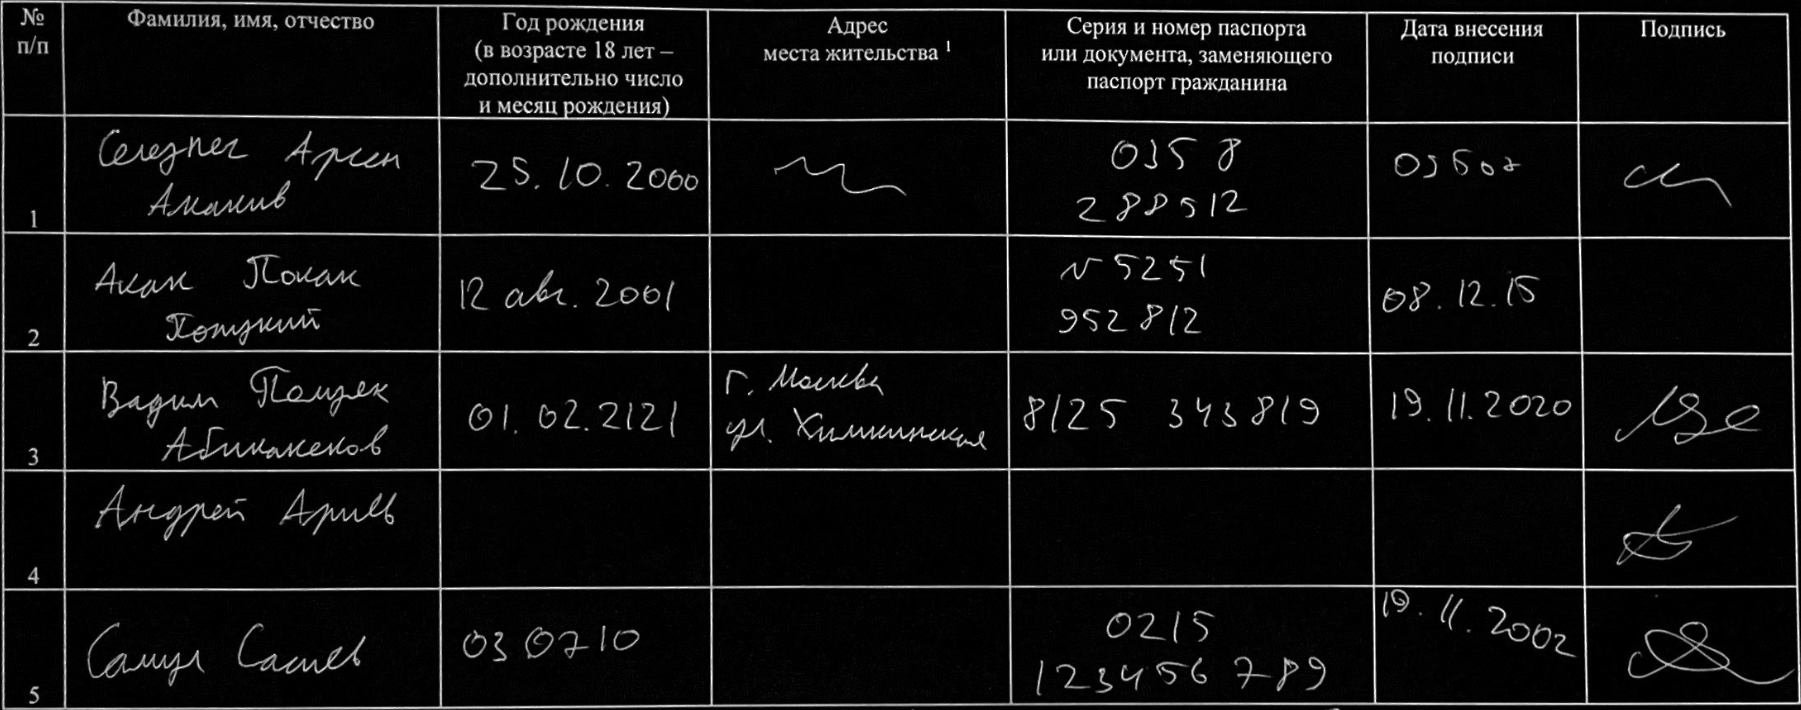 № п/п
Фамилия, имя, отчество
Год рождения
(в возрасте 18 лет –
дополнительно число
и месяц рождения)
Адрес
места жительства ¹
Серия и номер паспорта
или документа, заменяющего
паспорт гражданина
Дата внесения
подписи
Подпись
1
Арсен
25.10.2000
0358
288512
2
Акак Полак
12 авг. 2001
N 5251
952812
08.12.15
3
Вадим
Абикакеков
01.02.2121
г. Москва
ул. Химкинская
8125 343819
19.11.2020
4
Андрей Ариев
5
030710
0215
123456 789
19.11.2002